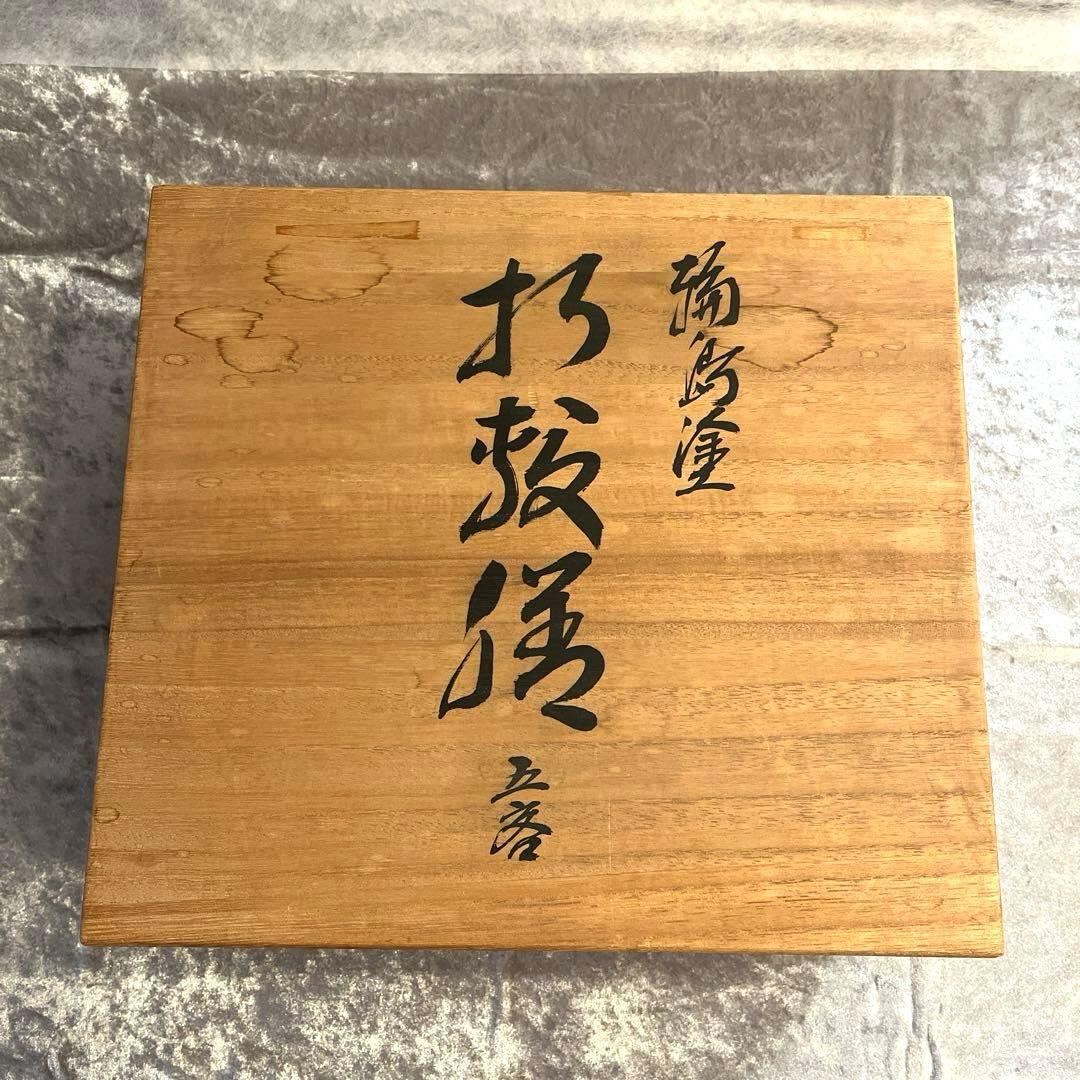 輪島塗
折敷膳
五客